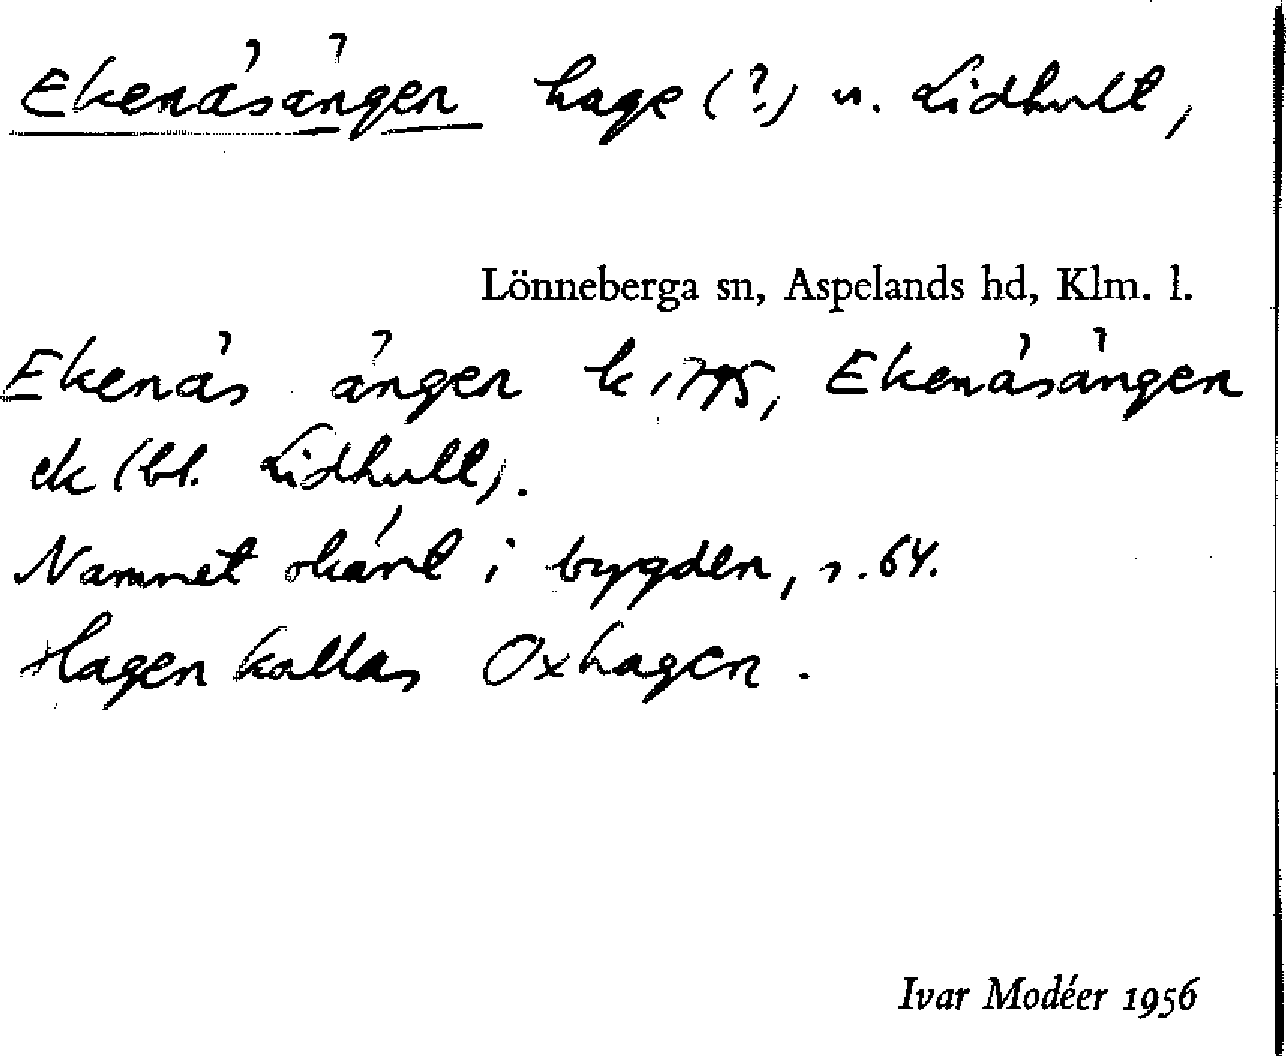 Ekenäsängen hage (?) u. Lidhult,
Lönneberga sn, Aspelands hd, Klm. l.
Ekenäs ängen k 1795, Ekenäsängen
ek (bl. Lidhult).
Namnet okänt i bygden, s. 64.
Hagen kallas Oxhagen.
Ivar Modéer 1956